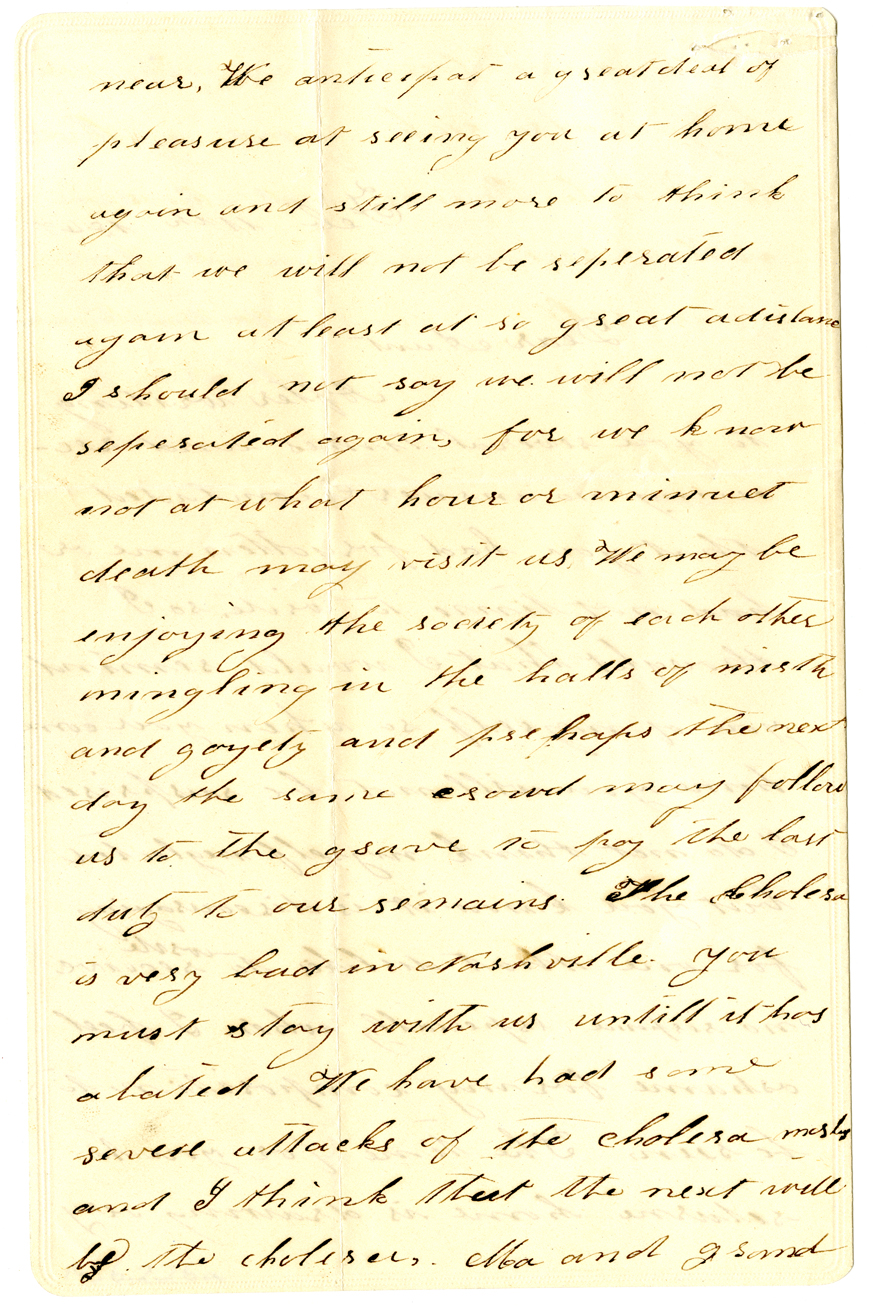 near, We anticipat a great deal of
pleasure at seeing you at home
again and still more to think
that we will not be seperated
again at least at so great a distanc
I should not say we will not be
seperated again, for we know
not at what hour or minuet
death may visit us. We may be
enjoying the society of each other
mingling in the halls of mirth
and gayety and perhaps the next
day the same crowd may follow
us to the grave to pay the last
duty to our remains. The Cholera
is very bad in Nashville. You
must stay with us untill it has
abated We have had some
severe attacks of the cholera
and I think that the next will
be the cholera. Ma and grand